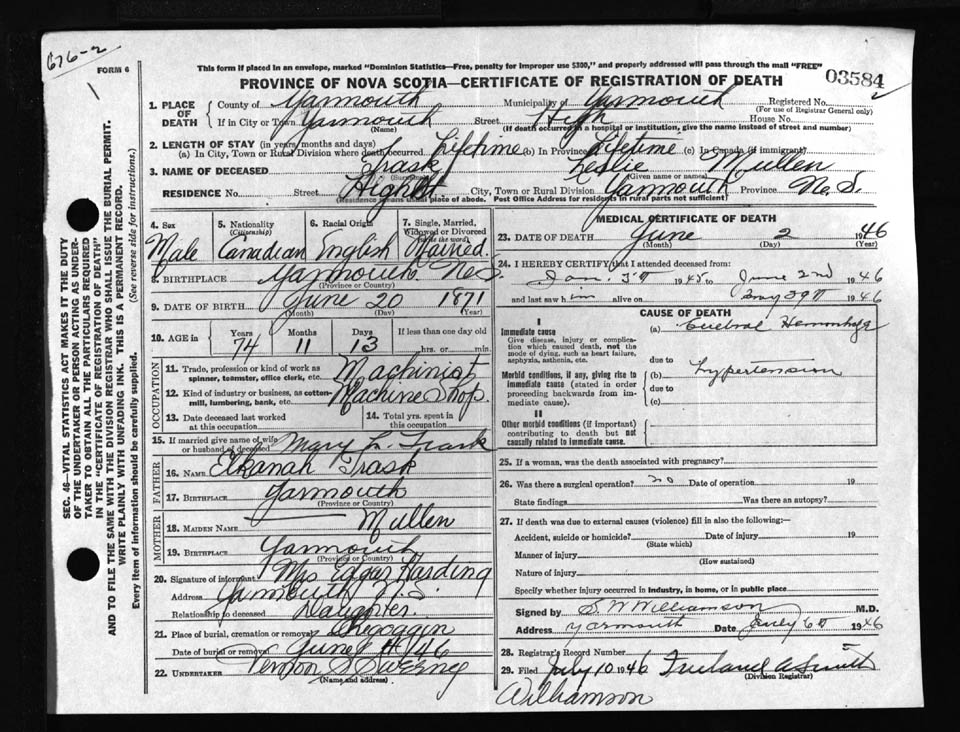 676-2
FORM 6
This form if placed in an envelope, marked "Dominion Statistics—Free, penalty for improper use $300," and properly addressed will pass through the mail "FREE"
PROVINCE OF NOVA SCOTIA—CERTIFICATE OF REGISTRATION OF DEATH
03584
1. PLACE OF DEATH
County of Yarmouth Municipality of Yarmouth Registered No.
(For use of Registrar General only)
If in City or Town Yarmouth Street High House No.
(Name) (If death occurred in a hospital or institution, give the name instead of street and number)
2. LENGTH OF STAY (in years, months and days)
(a) In City, Town or Rural Division where death occurred Lifetime (b) In Province Lifetime (c) In Canada (if immigrant)
3. NAME OF DECEASED Trask Leslie Mullen
(Given name or names)
RESIDENCE No. Street High St City, Town or Rural Division Yarmouth Province N.S.
(Residence means usual place of abode. Post Office Address for residents in rural parts not sufficient)
4. Sex Male
5. Nationality (Citizenship) Canadian
6. Racial Origin English
7. Single, Married, Widowed or Divorced (write the word) Married
8. BIRTHPLACE Yarmouth N.S.
(Province or Country)
9. DATE OF BIRTH June 20 1871
(Month) (Day) (Year)
10. AGE in Years Months Days If less than one day old
74 11 13 hrs. or min.
OCCUPATION
11. Trade, profession or kind of work as spinner, teamster, office clerk, etc. Machinist
12. Kind of industry or business, as cotton-mill, lumbering, bank, etc. Machine Shop
13. Date deceased last worked at this occupation
14. Total yrs. spent in this occupation
15. If married give name of wife or husband of deceased Mary L. Trask
FATHER
16. NAME Elkanah Trask
17. BIRTHPLACE Yarmouth
(Province or Country)
MOTHER
18. MAIDEN NAME Mullen
19. BIRTHPLACE Yarmouth
(Province or Country)
20. Signature of informant Mrs Edgar Harding
Address Yarmouth N.S.
Relationship to deceased Daughter.
21. Place of burial, cremation or removal Chegoggin
Date of burial or removal June 4 1946
22. UNDERTAKER Vernon S Sweeney
(Name and address)
MEDICAL CERTIFICATE OF DEATH
23. DATE OF DEATH June 2 1946
(Month) (Day) (Year)
24. I HEREBY CERTIFY that I attended deceased from:
Jan. 1945 to June 2nd 1946
and last saw him alive on May 1946
CAUSE OF DEATH
I
Immediate cause (a) Cerebral Hemorrhage
Give disease, injury or complication which caused death, not the mode of dying, such as heart failure, asphyxia, asthenia, etc.
due to
Morbid conditions, if any, giving rise to immediate cause (stated in order proceeding backwards from immediate cause).
(b) hypertension
due to
(c)
II
Other morbid conditions (if important) contributing to death but not causally related to immediate cause.
25. If a woman, was the death associated with pregnancy?
26. Was there a surgical operation? no Date of operation 19
State findings Was there an autopsy?
27. If death was due to external causes (violence) fill in also the following:—
Accident, suicide or homicide? Date of injury 19
(State which)
Manner of injury
(How sustained)
Nature of injury
Specify whether injury occurred in industry, in home, or in public place
Signed by S. W Williamson M.D.
Address Yarmouth Date July 6th 1946
28. Registrar's Record Number
29. Filed July 10 1946 A Smith
(Division Registrar)
Williamson
SEC. 46—VITAL STATISTICS ACT MAKES IT THE DUTY OF THE UNDERTAKER OR PERSON ACTING AS UNDERTAKER TO OBTAIN ALL THE PARTICULARS REQUIRED IN THE "CERTIFICATE OF REGISTRATION OF DEATH"
AND TO FILE THE SAME WITH THE DIVISION REGISTRAR WHO SHALL ISSUE THE BURIAL PERMIT.
WRITE PLAINLY WITH UNFADING INK. THIS IS A PERMANENT RECORD.
Every item of information should be carefully supplied. (See reverse side for instructions.)